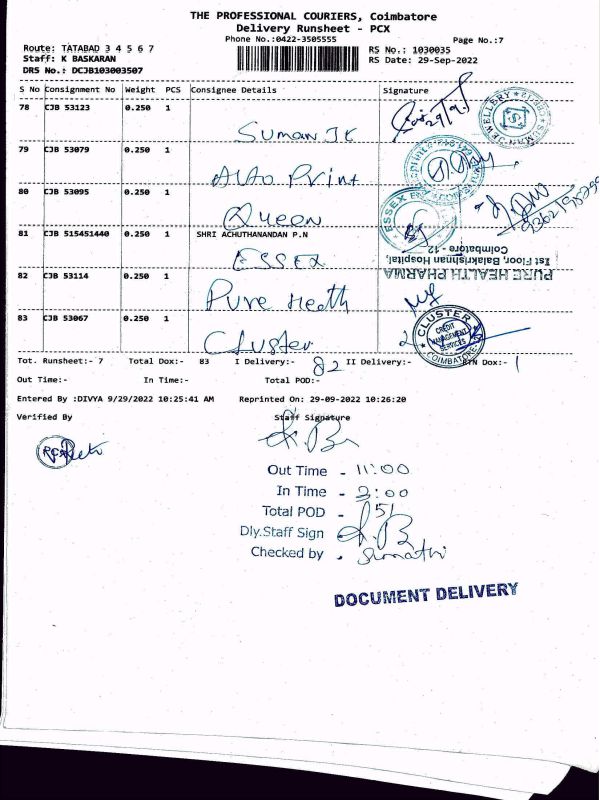 THE PROFESSIONAL COURIERS, Coimbatore
Delivery Runsheet - PCX
Phone No.:0422-3505555
Page No.:7
Route: TATABAD 3 4 5 6 7
RS No.: 1030035
Staff: K BASKARAN
RS Date: 29-Sep-2022
DRS No.: DCJB103003507
S No Consignment No Weight PCS Consignee Details Signature
78 CJB 53123 0.250 1
Suman Jk
79 CJB 53079 0.250 1
Auto Print
80 CJB 53095 0.250 1
Queen
9362198299
81 CJB 515451440 0.250 1 SHRI ACHUTHANANDAN P.N
ESSEX
PURE HEALTH PHARMA
1st Floor, Balakrishnan Hospital,
Coimbatore - 12
82 CJB 53114 0.250 1
Pure Health
83 CJB 53067 0.250 1
Cluster
CLUSTER
CREDIT
MANAGEMENT
SERVICES
COIMBATORE
Tot. Runsheet:- 7 Total Dox:- 83 I Delivery:- 82 II Delivery:- RTN Dox:- 1
Out Time:- In Time:- Total POD:-
Entered By :DIVYA 9/29/2022 10:25:41 AM Reprinted On: 29-09-2022 10:26:20
Verified By Staff Signature
Out Time - 11:00
In Time - 2:00
Total POD - 51
Dly.Staff Sign
Checked by - Sumathi
DOCUMENT DELIVERY